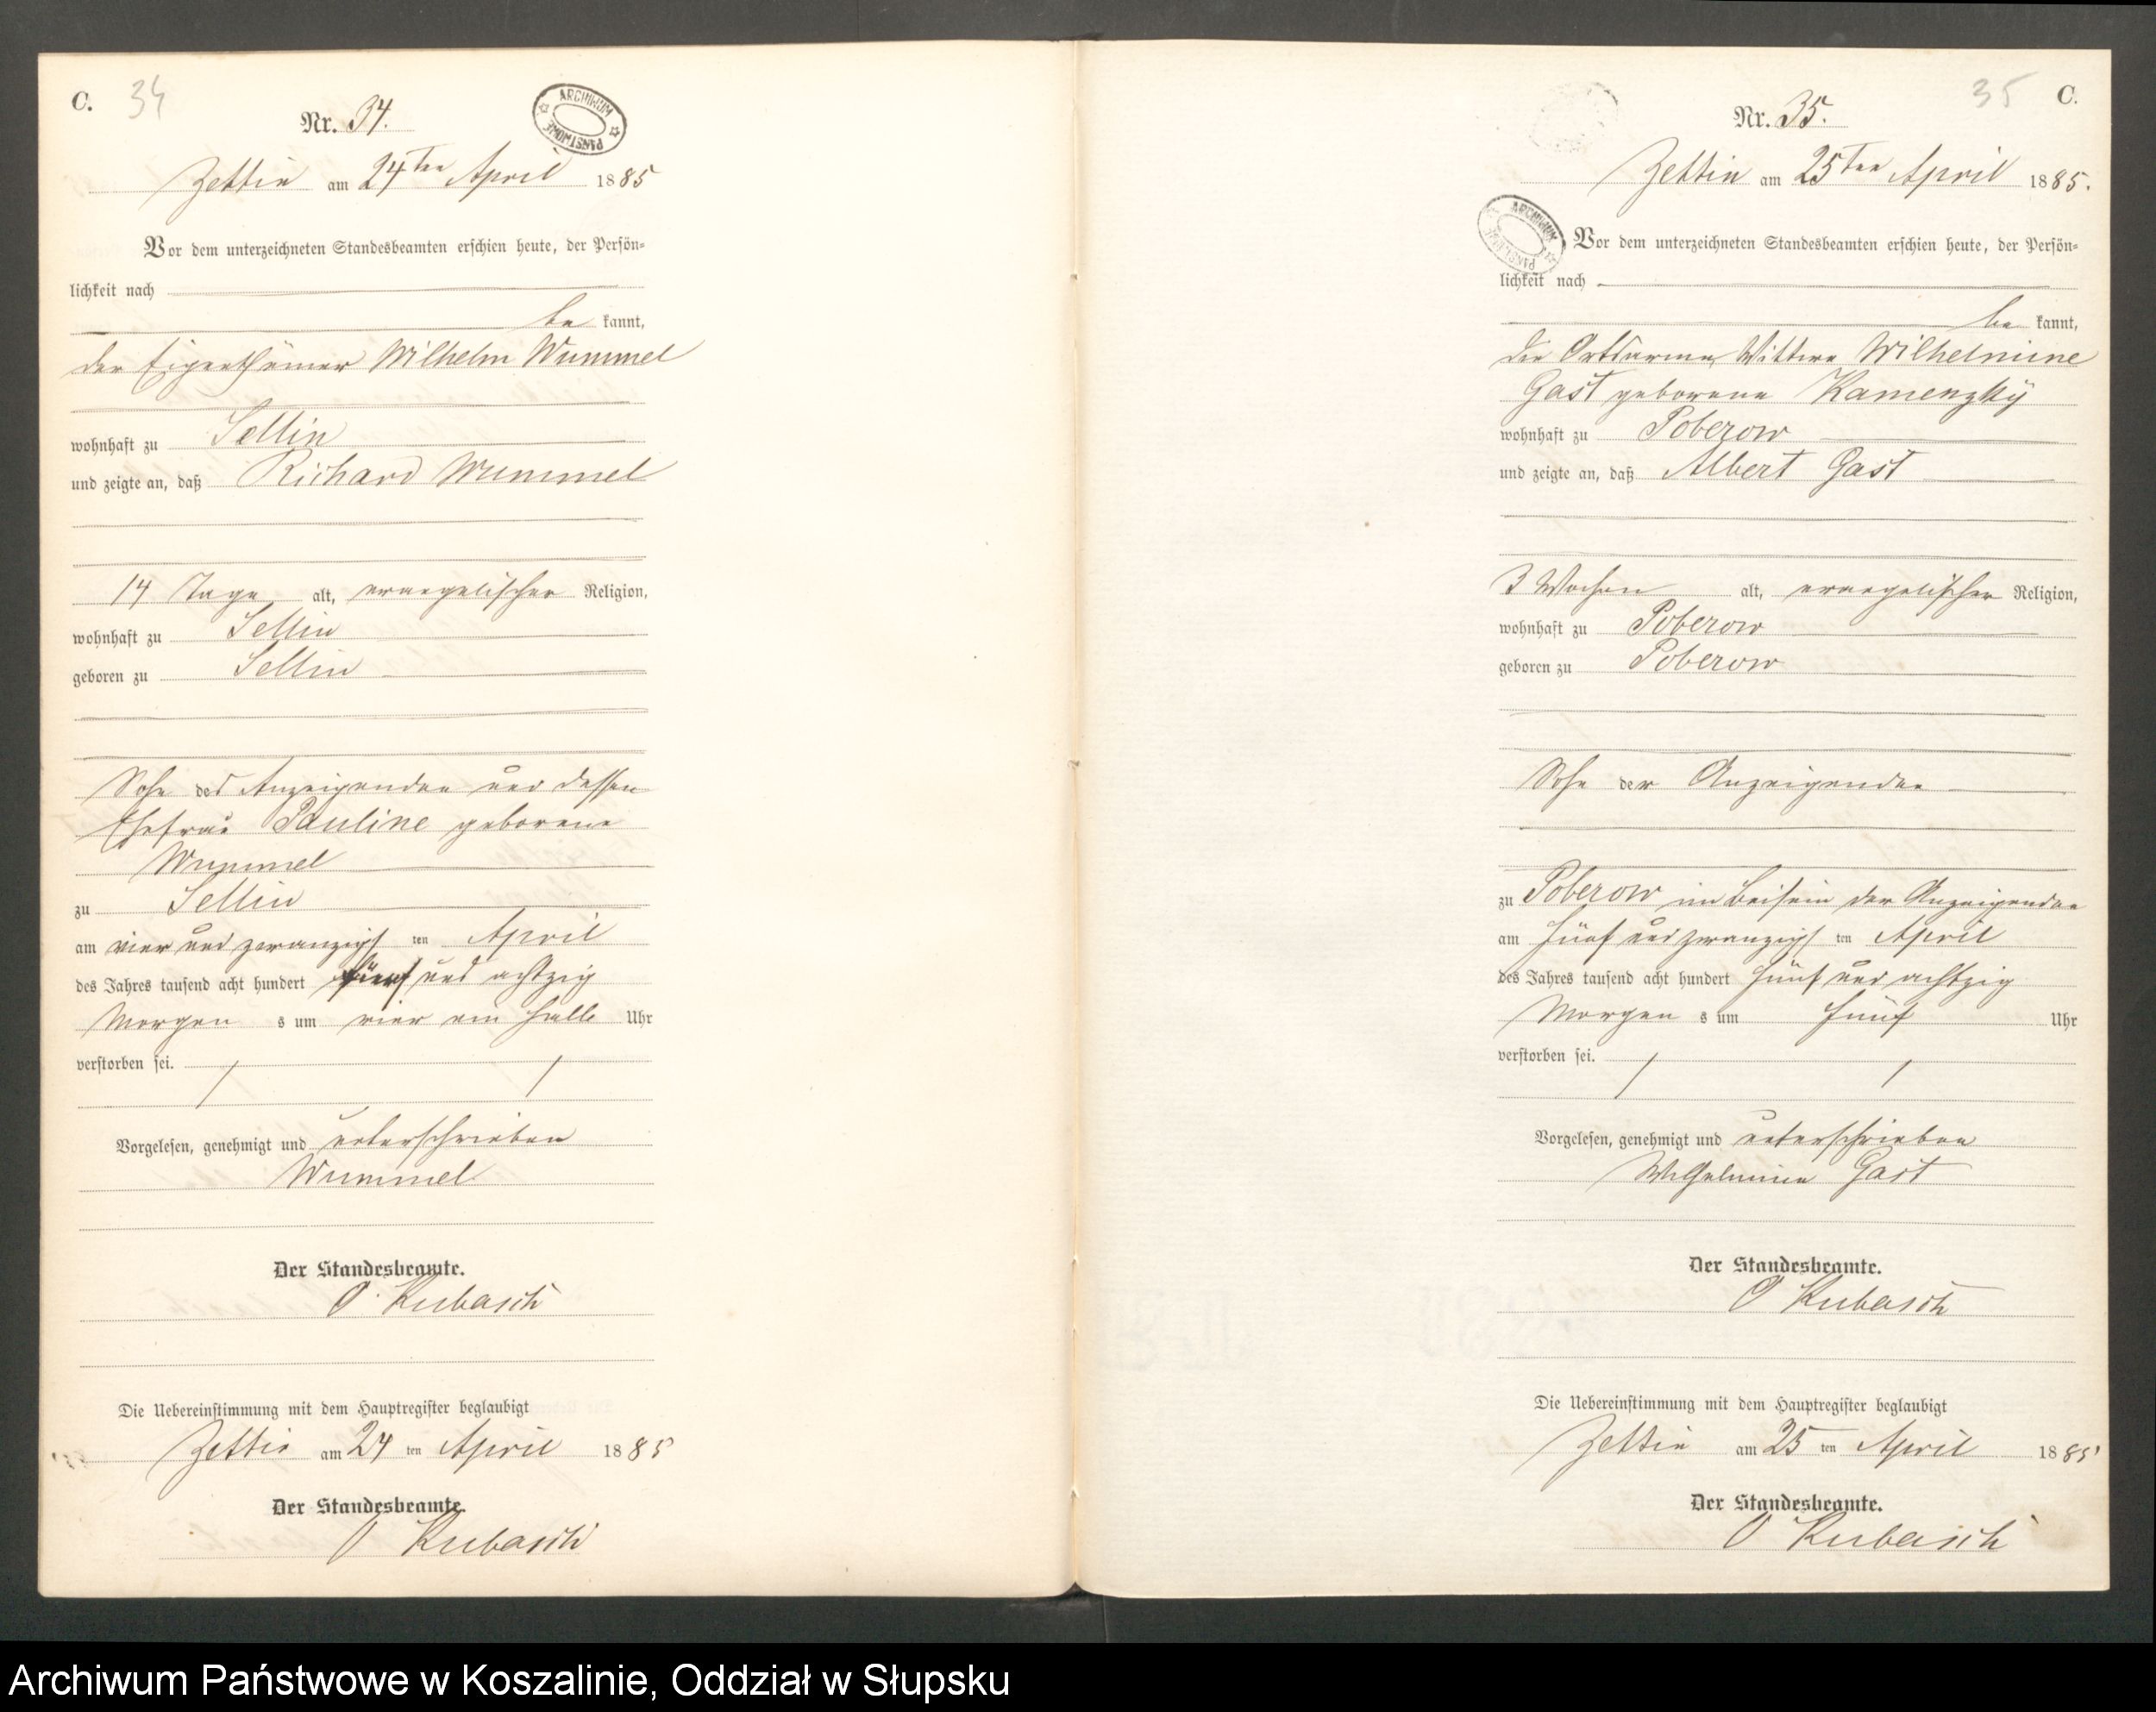 C. 34
Nr. 34.
ARCHIWUM PAŃSTWOWE
Zettin am 24ten April 1885
Vor dem unterzeichneten Standesbeamten erschien heute, der Persön-
lichkeit nach
be kannt,
der Eigenthümer Wilhelm Wummel
wohnhaft zu Sellin
und zeigte an, daß Richard Wummel
14 Tage alt, evangelischer Religion,
wohnhaft zu Sellin
geboren zu Sellin
Sohn des Anzeigenden und dessen
Ehefrau Pauline geborene
Wummel
zu Sellin
am vier und zwanzigst ten April
des Jahres tausend acht hundert fünf und achtzig
Morgen s um vier ein halb Uhr
verstorben sei.
Vorgelesen, genehmigt und unterschrieben
Wummel
Der Standesbeamte.
O. Kubasch
Die Uebereinstimmung mit dem Hauptregister beglaubigt
Zettin am 24 ten April 1885
Der Standesbeamte.
O Kubasch
35 C.
Nr. 35.
Zettin am 25ten April 1885.
ARCHIWUM PAŃSTWOWE
Vor dem unterzeichneten Standesbeamten erschien heute, der Persön-
lichkeit nach
be kannt,
die Ortsarme, Wittwe Wilhelmine
Gast geborene Kamenzky
wohnhaft zu Poberow
und zeigte an, daß Albert Gast
3 Wochen alt, evangelischer Religion,
wohnhaft zu Poberow
geboren zu Poberow
Sohn der Anzeigenden
zu Poberow im Beisein der Anzeigenden
am fünf und zwanzigst ten April
des Jahres tausend acht hundert fünf und achtzig
Morgen s um fünf Uhr
verstorben sei.
Vorgelesen, genehmigt und unterschrieben
Wilhelmine Gast
Der Standesbeamte.
O Kubasch
Die Uebereinstimmung mit dem Hauptregister beglaubigt
Zettin am 25 ten April 1885
Der Standesbeamte.
O Kubasch
Archiwum Państwowe w Koszalinie, Oddział w Słupsku